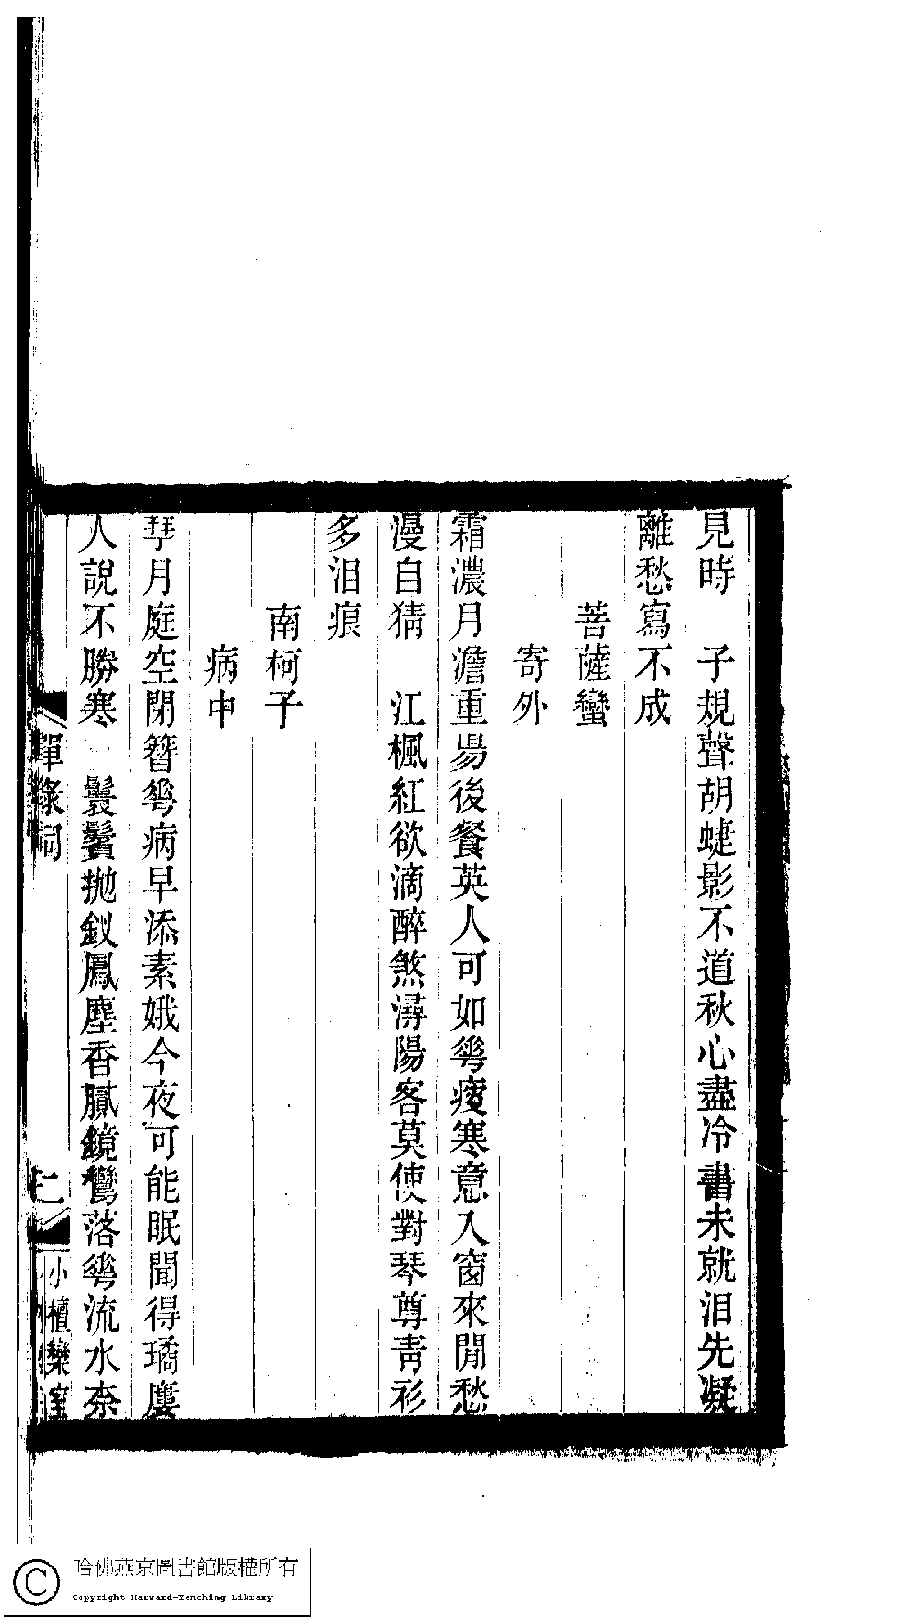 見時　子規聲胡蜨影不道秋心盡冷書未就泪先凝
離愁寫不成
菩薩蠻
寄外
霜濃月澹重昜後餐英人可如𠌶瘦寒意入窗來閒愁
漫自猜　江楓紅欲滴醉煞潯陽客莫使對琴尊青衫
多泪痕
南柯子
病中
月庭空閉簪𠌶病早添素娥今夜可能眠聞得璚廔
人說不勝寒　鬟鬢拋釵鳳塵香膩鏡鸞落𠌶流水柰
詞
二
小檀欒室
哈佛燕京圖書館版權所有
Copyright Harvard-Yenching Library